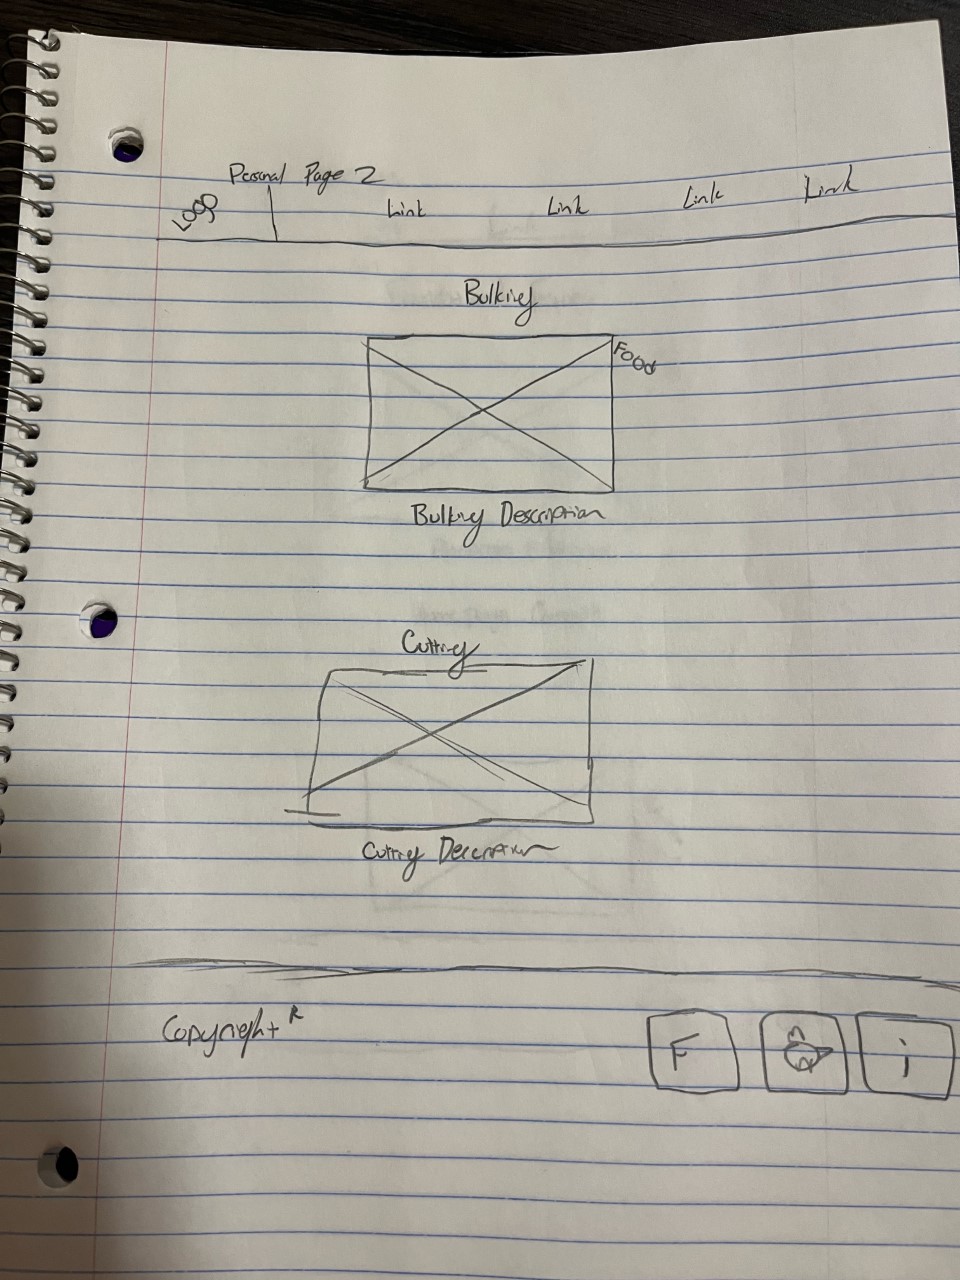 Personal Page 2
LOGO Link Link Link Link
Bulking
Food
Bulking Description
Cutting
Cutting Description
Copyright R
F i